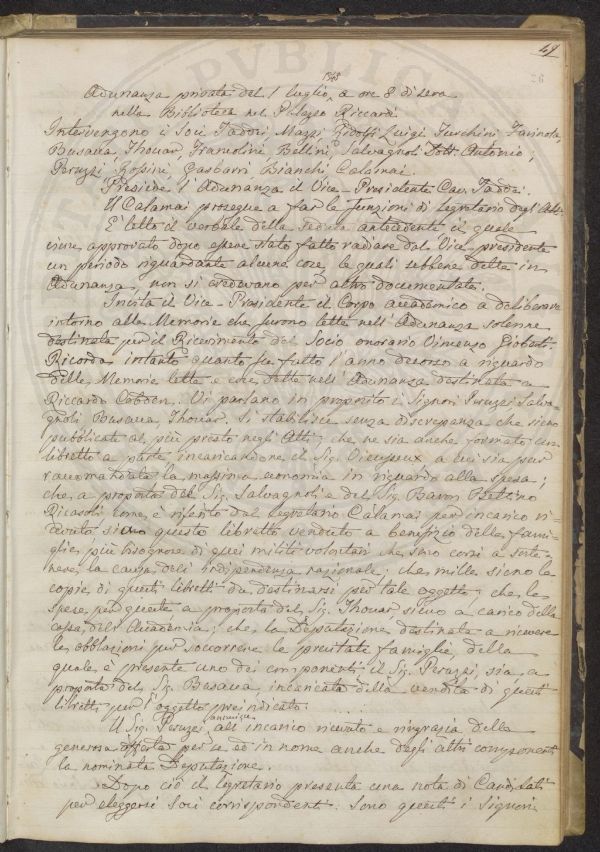 49
26
1848
Adunanza privata del 1 luglio a ore 8 di sera
nella Biblioteca nel Palazzo Riccardi.
Intervengono i Soci Taddei, Mazzi, Ridolfi Luigi, Turchini, Farinola,
Busacca, Thouar, Franceolini, Bellini, Salvagnoli Dott. Antonio,
Peruzzi, Rossini, Gasbarri, Bianchi, Calamai.
Presiede l'Adunanza il Vice-Presidente Cav. Taddei.
Il Calamai prosegue a far le funzioni di Segretario degli Atti.
È letto il verbale della seduta antecedente il quale
viene approvato dopo essere stato fatto radiare dal Vice-presidente
un periodo riguardante alcune cose le quali sebbene dette in
Adunanza, non si credevano per altro documentate.
Invita il Vice-Presidente il Corpo accademico a deliberare
intorno alle Memorie che furono lette nell'Adunanza solenne
destinata per il Ricevimento del Socio onorario Vincenzo Gioberti.
Ricorda intanto quanto fu fatto l'anno decorso a riguardo
delle Memorie lette e cose dette nell'Adunanza destinata a
Riccardo Cobden. Vi parlano in proposito i Signori Peruzzi Salva-
gnoli Busacca, Thouar. Si stabilisce senza discrepanza che sieno
pubblicati al più presto negli Atti; che ne sia anche formato un
libretto a parte incaricandone il Sig. Vieusseux a cui sia pur
raccomandata la massima economia in riguardo alla spesa;
che, a proposta del Sig. Salvagnoli e del Sig. Baron Bettino
Ricasoli come è riferito dal Segretario Calamai per incarico ri-
cevuto, sia questo libretto venduto a benefizio delle fami-
glie più bisognose di quei militi volontari che sono corsi a soste-
nere la causa dell'indipendenza nazionale; che mille sieno le
copie di questi libretti da destinarsi per tale oggetto; che le
spese per queste a proposta del Sig. Thouar, sieno a carico della
cassa dell'Accademia; che la Deputazione destinata a ricevere
le obblazioni per soccorrere le precitate famiglie, della
quale è presente uno dei componenti il Sig. Peruzzi, sia, a
proposta del Sig. Busacca, incaricata della vendita di questi
libretti per l'oggetto preindicato.
Il Sig. Peruzzi annuisce all'incarico ricevuto e ringrazia della
generosa offerta per se ed in nome anche degli altri componenti
la nominata Deputazione.
Dopo ciò il Segretario presenta una nota di Candidati
per eleggersi Soci corrispondenti. Sono questi i Signori